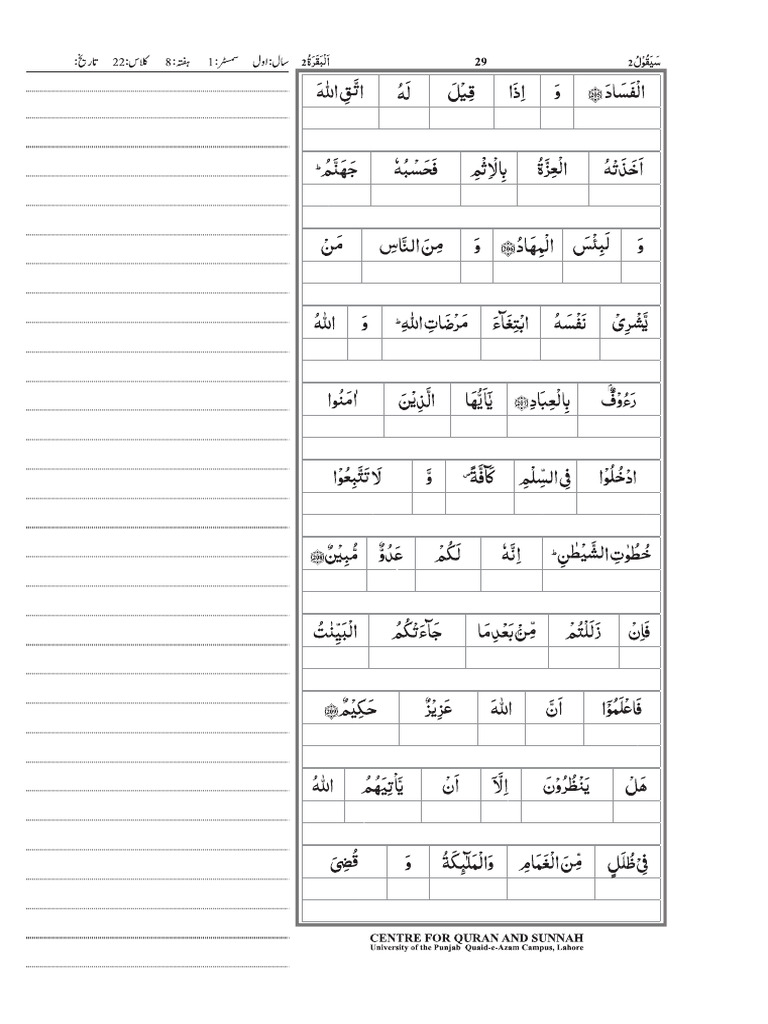 سَیَقُوْلُ2 29 اَلْبَقَرَۃُ2 سال:اول سمسٹر:1 ہفتہ:8 کلاس:22 تاریخ:
الْفَسَادَ ﴿205﴾ وَ اِذَا قِیْلَ لَہُ اتَّقِ اللّٰہَ
اَخَذَتْہُ الْعِزَّۃُ بِالْاِثْمِ فَحَسْبُہٗ جَھَنَّمُ ؕ
وَ لَبِئْسَ الْمِھَادُ ﴿206﴾ وَ مِنَ النَّاسِ مَنْ
یَّشْرِیْ نَفْسَہُ ابْتِغَآءَ مَرْضَاتِ اللّٰہِ ؕ وَ اللّٰہُ
رَءُوْفٌۢ بِالْعِبَادِ ﴿207﴾ یٰۤاَیُّھَا الَّذِیْنَ اٰمَنُوا
ادْخُلُوْا فِی السِّلْمِ کَآفَّۃً ۪ وَّ لَا تَتَّبِعُوْا
خُطُوٰتِ الشَّیْطٰنِ ؕ اِنَّہٗ لَکُمْ عَدُوٌّ مُّبِیْنٌ ﴿208﴾
فَاِنْ زَلَلْتُمْ مِّنْۢ بَعْدِ مَا جَآءَتْکُمُ الْبَیِّنٰتُ
فَاعْلَمُوْۤا اَنَّ اللّٰہَ عَزِیْزٌ حَکِیْمٌ ﴿209﴾
ھَلْ یَنْظُرُوْنَ اِلَّاۤ اَنْ یَّاْتِیَھُمُ اللّٰہُ
فِیْ ظُلَلٍ مِّنَ الْغَمَامِ وَالْمَلٰٓئِکَۃُ وَ قُضِیَ
CENTRE FOR QURAN AND SUNNAH
University of the Punjab Quaid-e-Azam Campus, Lahore